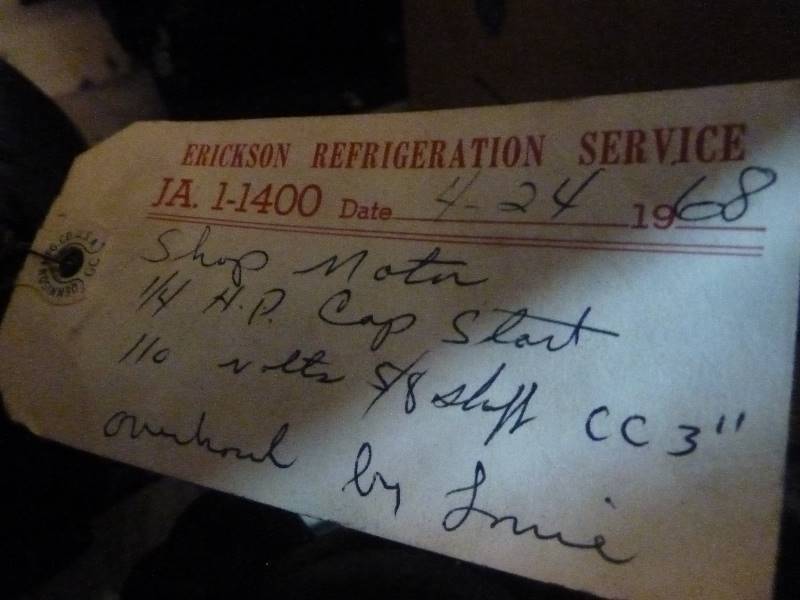 ERICKSON REFRIGERATION SERVICE
JA. 1-1400 Date 4-24 1968
Shop Motor
1/4 H.P. Cap Start
110 volts 5/8 shaft CC 3"
overhaul by Louie